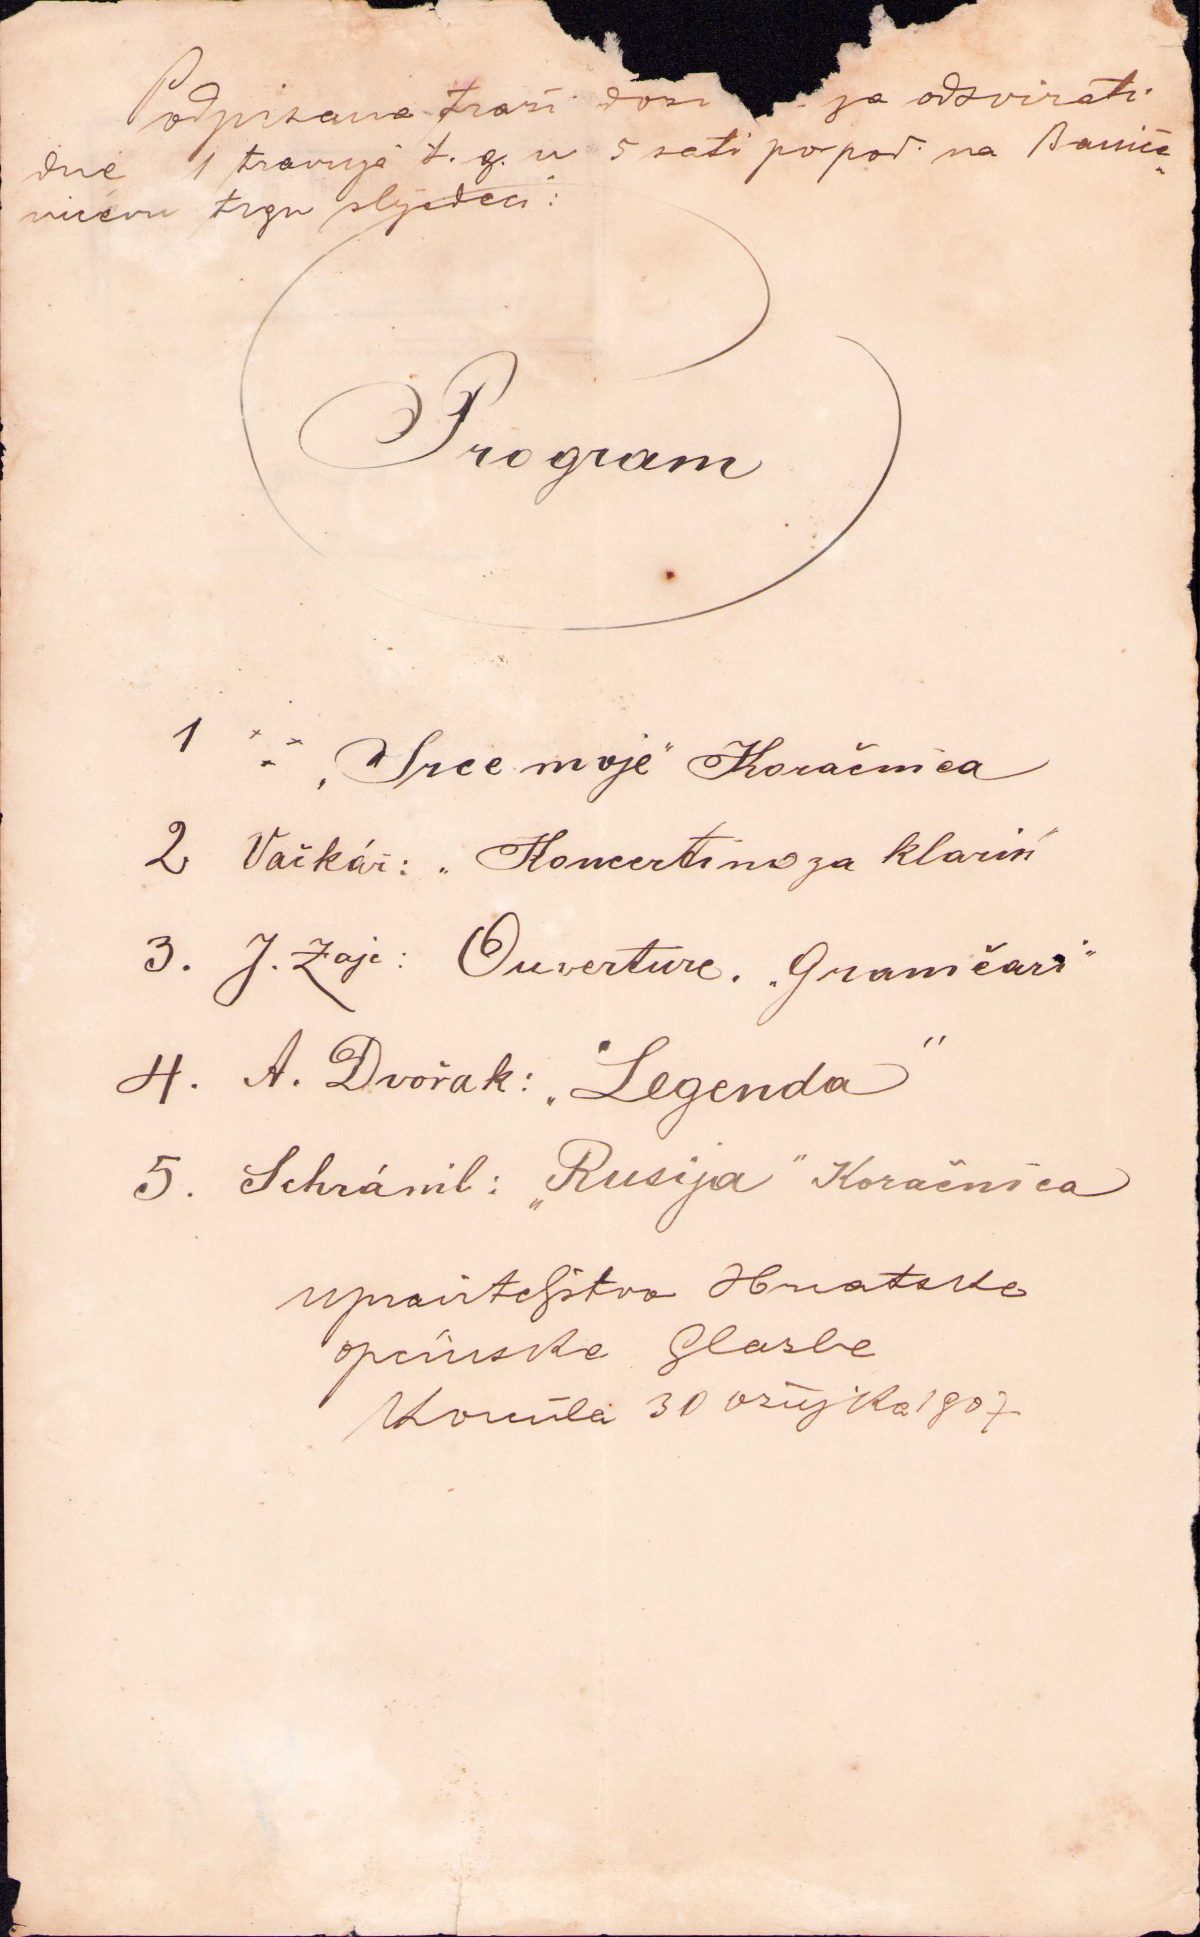 Podpisana traži za odsvirati
dne 1 travnja t. g. u 5 sati po pod. na
trgu slijedeći:
Program
1 „Srce moje“ Koračnica
2 Vačkář: „Koncertino za klarin“
3. J. Zajc: Ouverture. „Graničari“
4. A. Dvořak: „Legenda“
5. Schránil: „Rusija“ Koračnica
upraviteljstvo Hrvatske
općinske Glasbe
Korčula 30 ožujka 1907